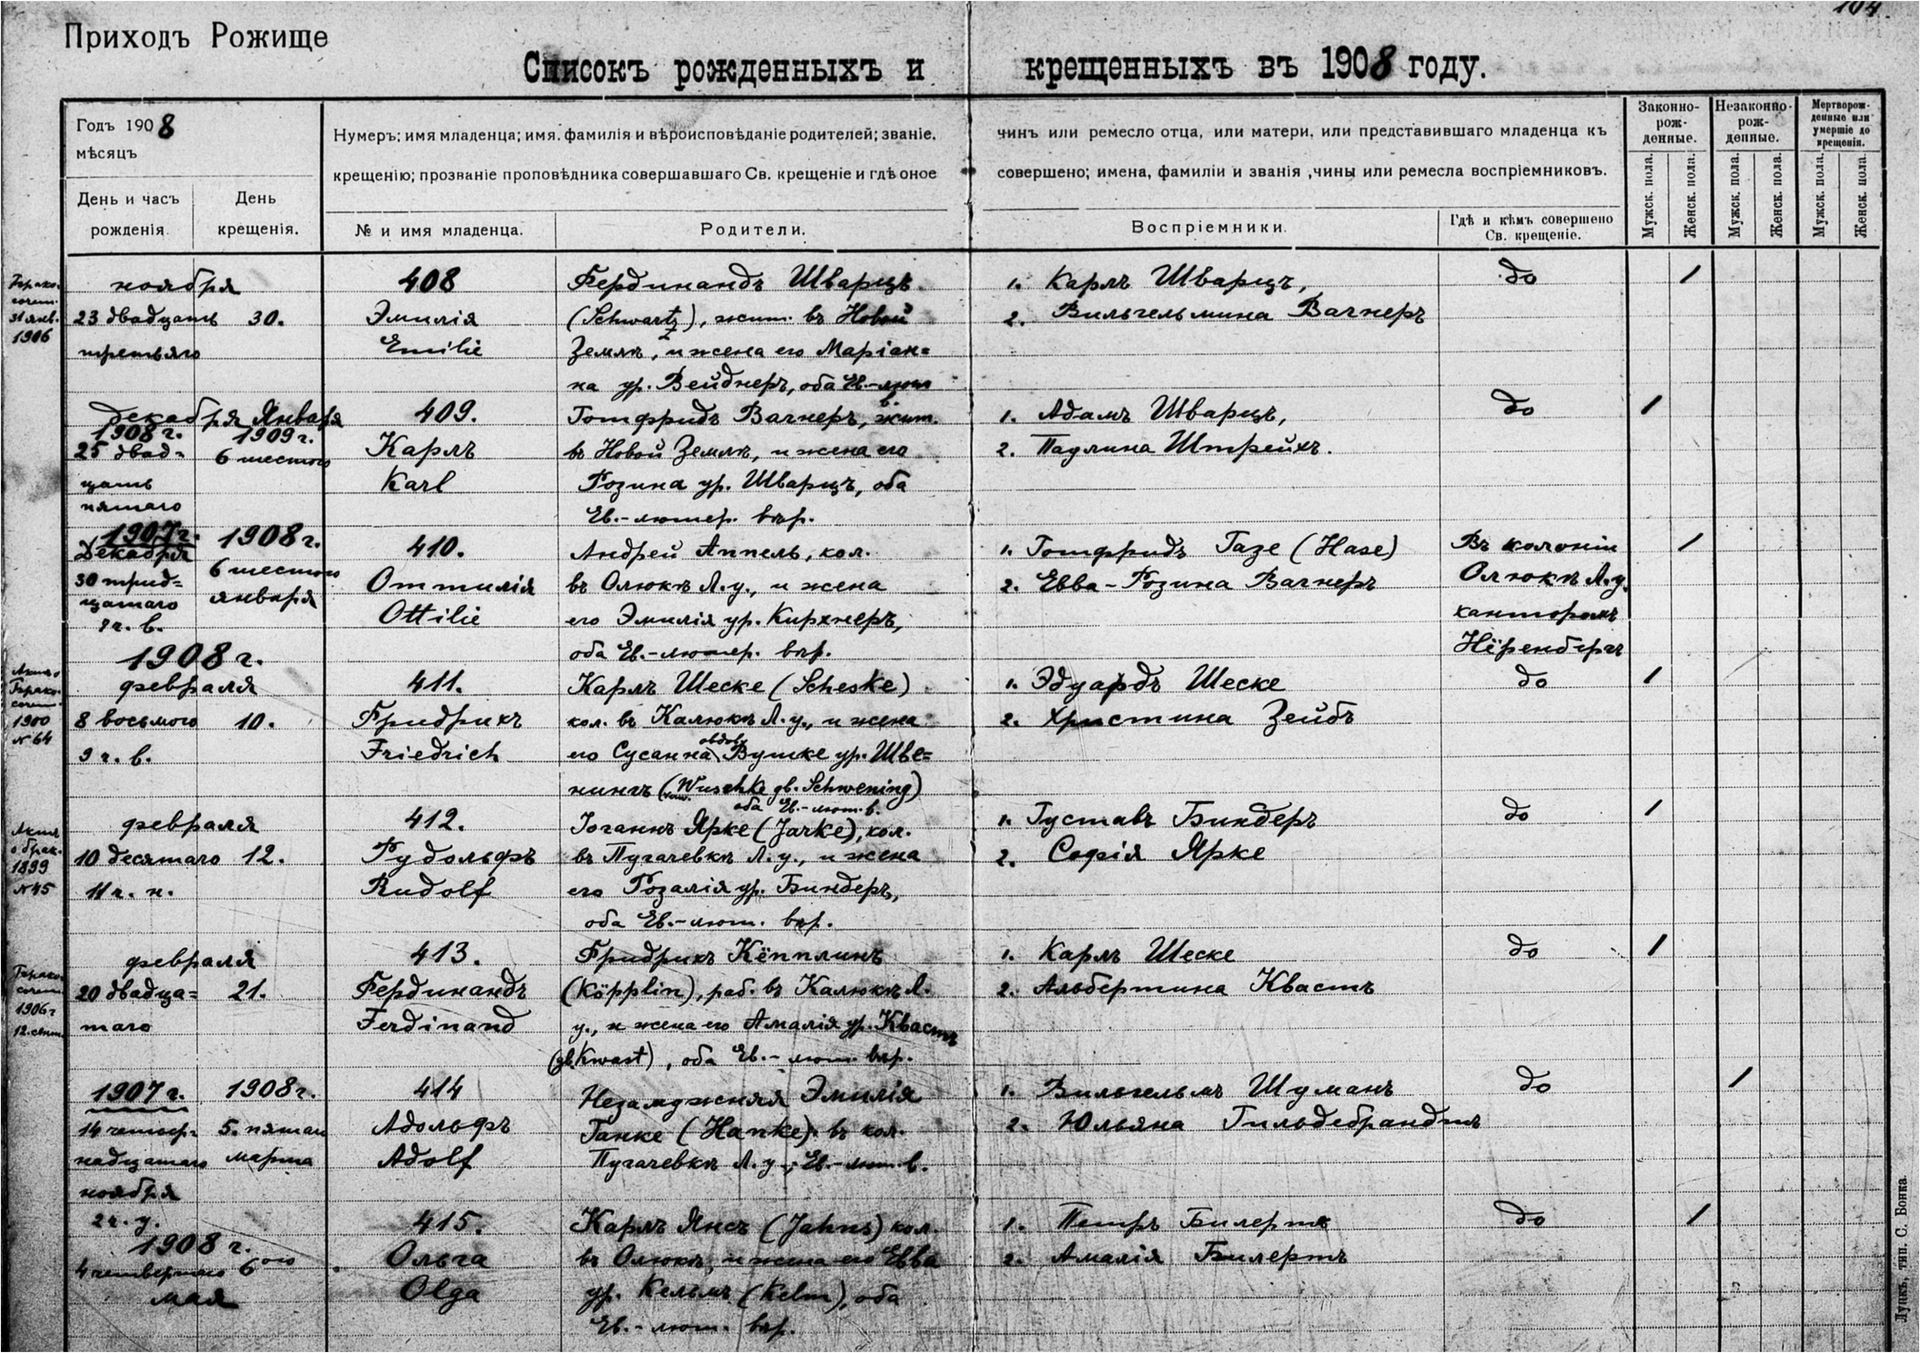 104.
Приходъ Рожище
Списокъ рожденныхъ и крещенныхъ въ 1908 году.
Годъ 1908
мѣсяцъ
День и часъ
рожденія.
День
крещенія.
Нумеръ; имя младенца; имя, фамилія и вѣроисповѣданіе родителей; званіе,
чинъ или ремесло отца, или матери, или представившаго младенца къ
крещенію; прозваніе проповѣдника совершавшаго Св. крещеніе и гдѣ оное
совершено; имена, фамиліи и званія ,чины или ремесла воспріемниковъ.
№ и имя младенца.
Родители.
Воспріемники.
Гдѣ и кѣмъ совершено
Св. крещеніе.
Законно-
рож-
денные.
Незаконно-
рож-
денные.
Мертворож-
денные или
умершіе до
крещенія.
Мужск. пола.
Женск. пола.
Мужск. пола.
Женск. пола.
Мужск. пола.
Женск. пола.
31 янв.
1906
ноября
23 двадцать
третьяго
30.
408
Эмилія
Emilie
Фердинандъ Шварцъ
(Schwartz), жит. въ Новой
Землѣ, и жена его Маріан=
на ур. Вейднеръ, оба Ев.-лют
1. Карлъ Шварцъ,
2. Вильгельмина Вагнеръ
до
/
декабря Января
1908 г. 1909 г.
25 двад-
цать
пятаго
6 шестого
409.
Карлъ
Karl
Готфридъ Вагнеръ, жит.
въ Новой Землѣ, и жена его
Розина ур. Шварцъ, оба
Ев.-лютер. вѣр.
1. Адамъ Шварцъ,
2. Паулина Штрейхъ.
до
/
1907 г.
Декабря
30 трид=
цатаго
9 ч. в.
1908 г.
6 шестого
января
410.
Оттилія
Ottilie
Андрей Аппель, кол.
въ Олюкѣ Л.у., и жена
его Эмилія ур. Кирхнеръ,
оба Ев.-лютер. вѣр.
1. Готфридъ Газе (Hase)
2. Евва-Розина Вагнеръ
Въ колоніи
Олюкѣ Л.у.
канторомъ
Нёренбергъ
/
1900
N 64
1908 г.
февраля
8 восьмого
9 ч. в.
10.
411.
Фридрихъ
Friedrich
Карлъ Шеске (Scheske)
кол. въ Калюкѣ Л.у., и жена
его Сусанна вдова Вушке ур. Шве=
нингъ (Wuschke gb. Schwening)
оба Ев.-лют. в.
1. Эдуардъ Шеске
2. Христина Зейбъ
до
/
Актъ
о брак.
1899
N 45
февраля
10 десятаго
11 ч. н.
12.
412.
Рудольфъ
Rudolf
Іоганнъ Ярке (Jarke), кол.
въ Пугачевкѣ Л.у., и жена
его Розалія ур. Биндеръ,
оба Ев.-лют. вѣр.
1. Густавъ Биндеръ
2. Софія Ярке
до
/
1906 г
12.
февраля
20 двадца=
таго
21.
413.
Фердинандъ
Ferdinand
Фридрихъ Кёпплинъ
(Köpplin), раб. въ Калюкѣ Л.
у., и жена его Амалія ур. Квастъ
(gb. Kwast), оба Ев.-лют. вѣр.
1. Карлъ Шеске
2. Альбертина Квастъ
до
/
1907 г.
14 четыр-
надцатаго
ноября
2 ч. у.
1908 г.
5. пятаго
марта
414
Адольфъ
Adolf
Незамужняя Эмилія
Ганке (Hanke). въ кол.
Пугачевкѣ Л.у., Ев.-лют. в.
1. Вильгельмъ Шуманъ
2. Юльяна Гильдебрандтъ
до
/
1908 г.
4 четвертаго 6ого
мая
415.
Ольга
Olga
Карлъ Янсъ (Jahns) кол.
въ Олюкѣ, и жена его Евва
ур. Кельмъ (Kelm), оба
Ев.-лют. вѣр.
1. Петръ Билертъ
2. Амалія Билертъ
до
/
Луцкъ, тип. С. Бонка.